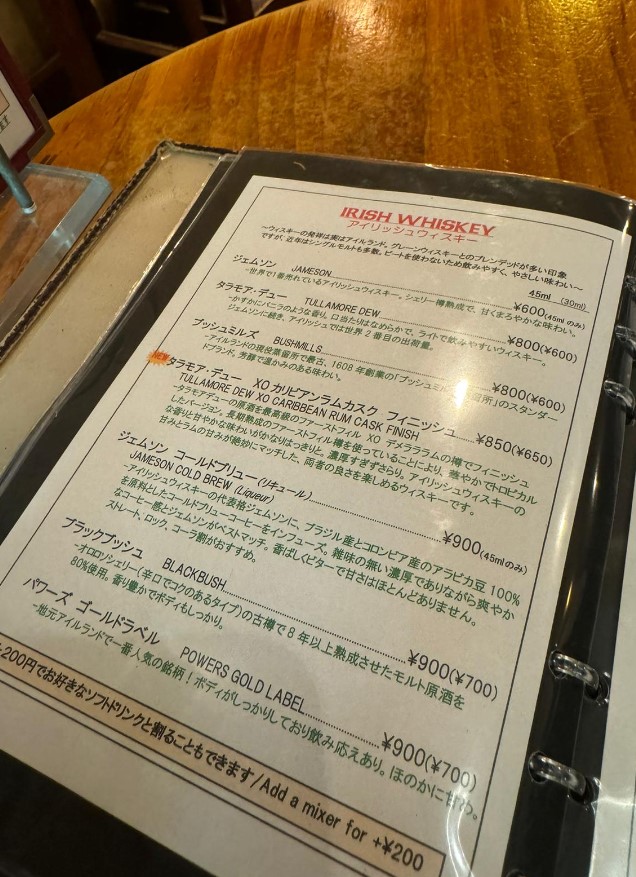 IRISH WHISKEY
アイリッシュウィスキー
~ウィスキーの発祥は実はアイルランド。グレーンウィスキーとのブレンデッドが多い印象
ですが、近年はシングルモルトも多数。ピートを使わないため飲みやすく、やさしい味わい~
45ml (30ml)
ジェムソン JAMESON ¥600(45mlのみ)
-世界で1番売れているアイリッシュウィスキー。シェリー樽熟成で、甘くまろやかな味わい。
タラモア・デュー TULLAMORE DEW ¥800(¥600)
-かすかにバニラのような香り。口当たりはなめらかで、ライトで飲みやすいウィスキー。
ジェムソンに続き、アイリッシュでは世界2番目の出荷量。
ブッシュミルズ BUSHMILLS ¥800(¥600)
-アイルランドの現役蒸留所で最古、1608年創業の「ブッシュミルズ蒸留所」のスタンダー
ドブランド。芳醇で温かみのある味わい。
NEW タラモア・デュー XOカリビアンラムカスク フィニッシュ
TULLAMORE DEW XO CARIBBEAN RUM CASK FINISH ¥850(¥650)
-タラモアデューの原酒を最高級のファーストフィル XO デメララムの樽でフィニッシュ
したバージョン。長期熟成のファーストフィル樽を使っていることにより、華やかでトロピカル
な香りと甘やかな味わいがかなりはっきりと、濃厚すぎずさらり。アイリッシュウィスキーの
甘みとラムの甘みが絶妙にマッチした、両者の良さを楽しめるウィスキーです。
ジェムソン コールドブリュー(リキュール)
JAMESON COLD BREW (Liqueur) ¥900(45mlのみ)
-アイリッシュウィスキーの代表格ジェムソンに、ブラジル産とコロンビア産のアラビカ豆100%
を原料としたコールドブリューコーヒーをインフューズ。雑味の無い濃厚でありながら爽やか
なコーヒー感とジェムソンがベストマッチ。香ばしくビターで甘さはほとんどありません。
ストレート、ロック、コーラ割がおすすめ。
ブラックブッシュ BLACKBUSH ¥900(¥700)
-オロロソシェリー(辛口でコクのあるタイプ)の古樽で8年以上熟成させたモルト原酒を
80%使用。香り豊かでボディもしっかり。
パワーズ ゴールドラベル POWERS GOLD LABEL ¥900(¥700)
-地元アイルランドで一番人気の銘柄!ボディがしっかりしており飲み応えあり。ほのかに甘め。
+200円でお好きなソフトドリンクと割ることもできます/Add a mixer for +¥200